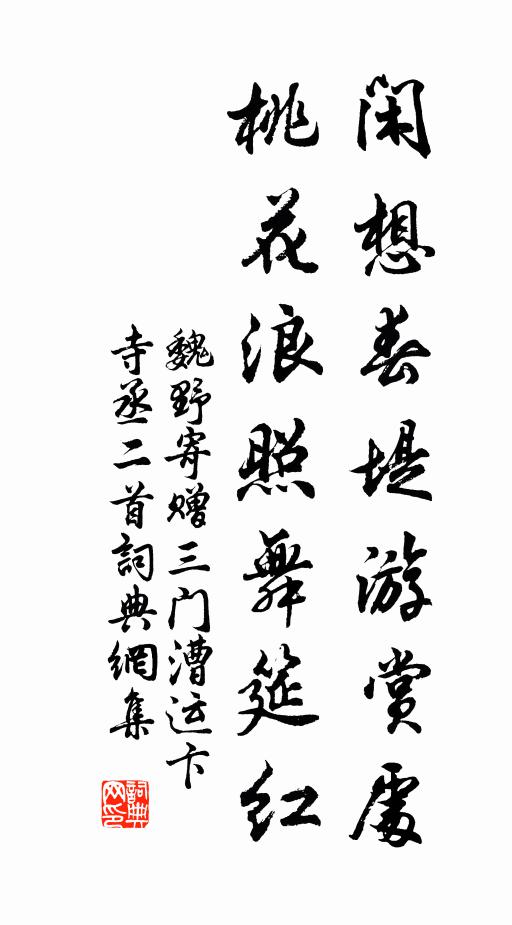 闲想春堤游赏處
桃花浪照舞筵红
魏野寄赠三门漕运卞
寺丞二首詞典網集
詞典
网印